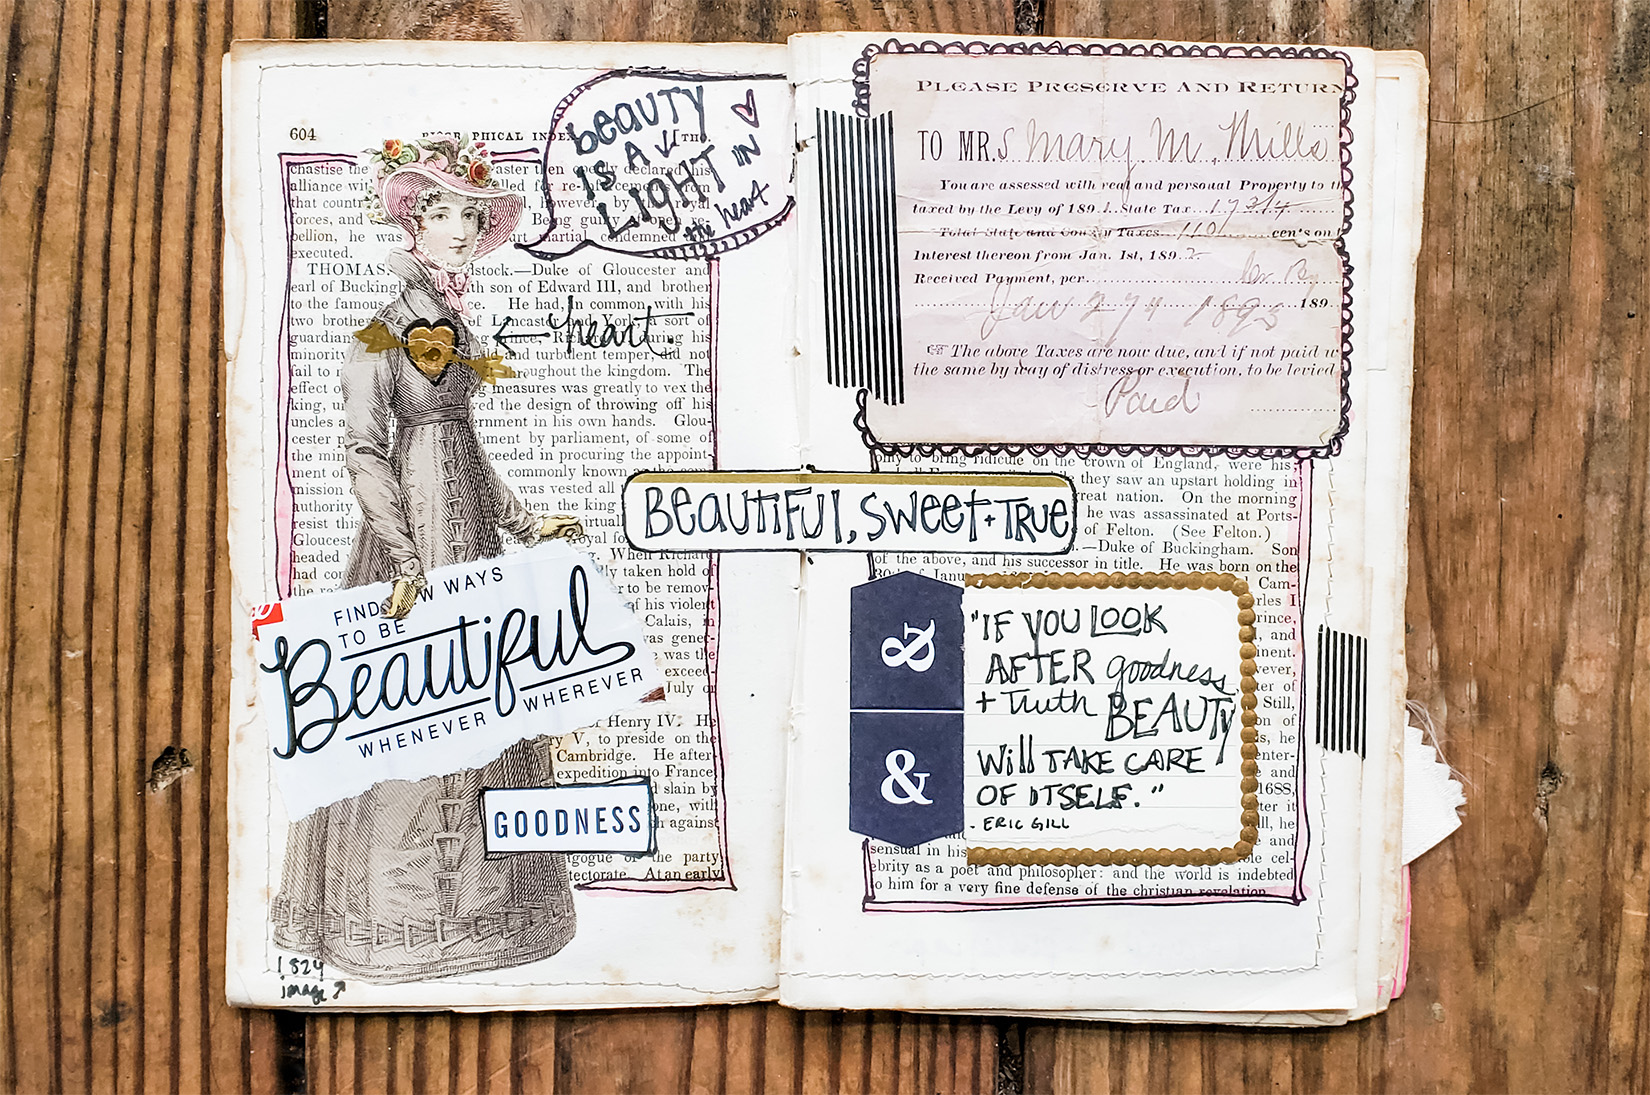 604
BIOGR PHICAL INDE
[THO.
beauty
is a
LIGHT IN
the heart
chastise the
aster then openly declared his
alliance wit
lled for re-inforcements from
that countr
d, however, by the royal
forces, and
Being guilty of open re-
bellion, he was
urt martial condemned
executed.
THOMAS.
dstock.—Duke of Gloucester and
earl of Bucking
th son of Edward III, and brother
to the famous
ce. He had, in common with his
two brothe
of Lancaster and York, a sort of
guardians
g prince, Rich
uring his
minority
ld and turbulent temper, did not
fail to r
hroughout the kingdom. The
effect o
g measures was greatly to vex the
king, u
red the design of throwing off his
uncles a
ernment in his own hands. Glou-
cester p
hment by parliament, of some of
the min
ceeded in procuring the appoint-
ment of
commonly known as the
mission
was vested all
authority
hen the king
resist this
irtual
Glouceste
royal fo
headed
g. When Richard
had co
ly taken hold of
r to be remov-
of his violent
Calais, in
was gener-
was the
exceed-
July or
heart.
FIND W WAYS
TO BE
Beautiful
WHENEVER WHEREVER
f Henry IV. He
y V, to preside on the
Cambridge. He after-
expedition into France
d slain by
one, with
h against
GOODNESS
agogue of the party
tectorate. At an early
1824
image
BEAUTIFUL, SWEET + TRUE
PLEASE PRESERVE AND RETURN
TO MRS Mary M. Mills
You are assessed with real and personal Property to th
taxed by the Levy of 189 1. State Tax... 17 3/4
Total State and County Taxes... 1101 cents on
Interest thereon from Jan. 1st, 189.2
Received Payment, per
Jan 27 1893 189
The above Taxes are now due, and if not paid w
the same by way of distress or execution, to be levied
Paid
only to bring ridicule on the crown of England, were his
they saw an upstart holding in
reat nation. On the morning
he was assassinated at Ports-
of Felton. (See Felton.)
—Duke of Buckingham. Son
of the above, and his successor in title. He was born on the
30th of Janu
Cam-
rles I
rince,
, and
inent.
vever,
ter of
Still,
on of
s, he
enter-
e and
1688,
ter it
ll, he
and
&
&
"IF YOU LOOK
AFTER goodness
+ Truth BEAUTY
Will TAKE CARE
OF ITSELF."
- ERIC GILL
sensual in his
ole cel-
ebrity as a poet and philosopher: and the world is indebted
to him for a very fine defense of the christian revelation.